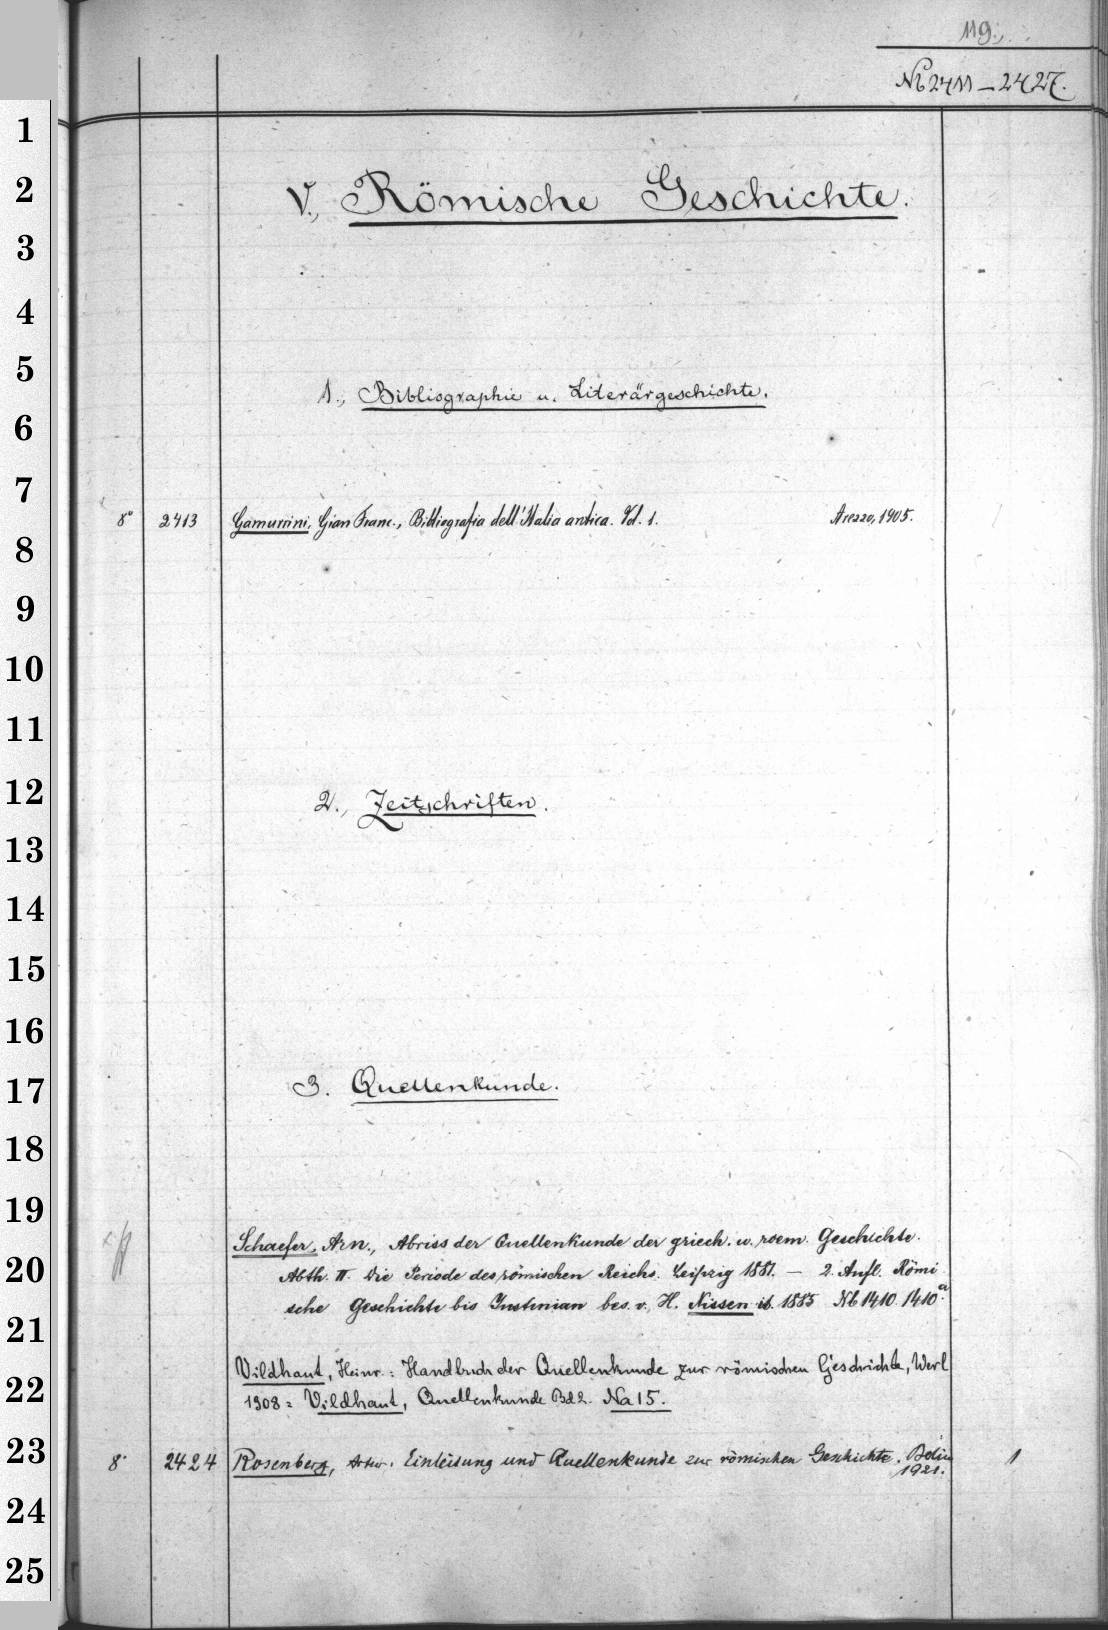 119.
№ 2411 – 2427.
1
2
V., Römische Geschichte.
3
4
5
1., Bibliographie u. Literärgeschichte.
6
7
8° 2413 Gamurrini, Gian Franc., Bibliografia dell'Italia antica. Vol. 1. Arezzo, 1905.
8
9
10
11
12
2., Zeitschriften.
13
14
15
16
17
3. Quellenkunde.
18
19
Schaefer, Arn., Abriss der Quellenkunde der griech. u. roem. Geschichte.
20
Abth. II. Die Periode des römischen Reichs. Leipzig 1881. — 2. Aufl. Römi
sche Geschichte bis Justinian bes. v. H. Nissen ib. 1885 № 1410. 1410a
21
Vildhaut, Heinr.: Handbuch der Quellenkunde zur römischen Geschichte, Werl
22
1908 = Vildhaut, Quellenkunde Bd 2. Na 15.
23
8° 2424 Rosenberg, Artur. Einleitung und Quellenkunde zur römischen Geschichte. Berlin 1
1921.
24
25